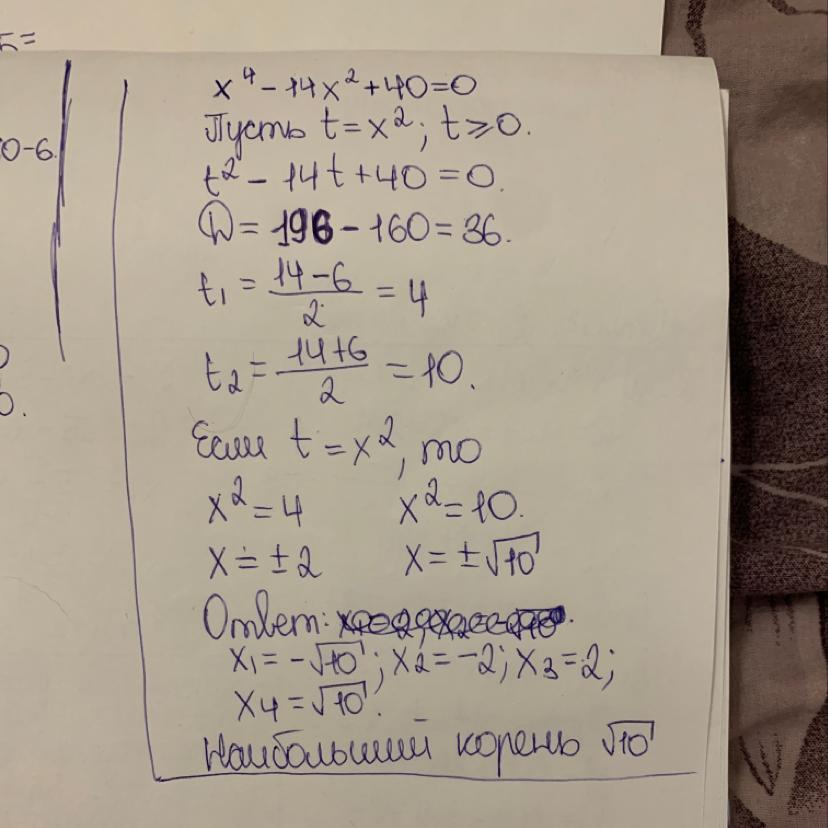 5=
0-6.
0.
x⁴ - 14x² + 40 = 0
Пусть t = x²; t ⩾ 0.
t² - 14t + 40 = 0.
D = 196 - 160 = 36.
t₁ = (14 - 6)/2 = 4
t₂ = (14 + 6)/2 = 10.
Если t = x², то
x² = 4 x² = 10.
x = ±2 x = ±√10
Ответ:
x₁ = -√10; x₂ = -2; x₃ = 2;
x₄ = √10.
Наибольший корень √10